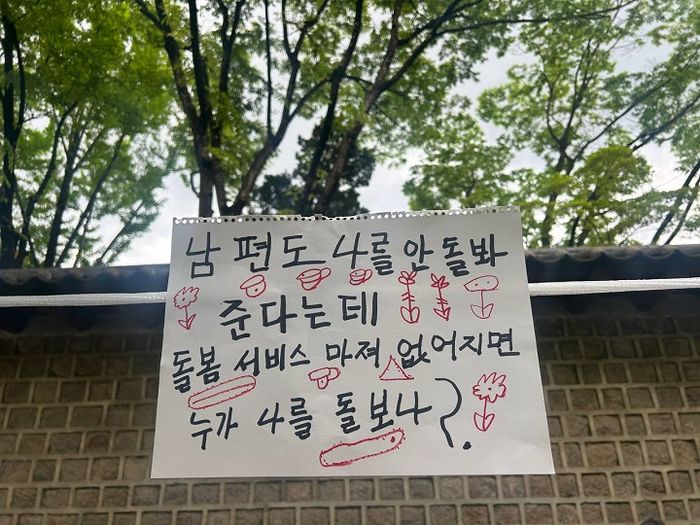 남편도 나를 안 돌봐
준다는데
돌봄 서비스 마져 없어지면
누가 나를 돌보나?.